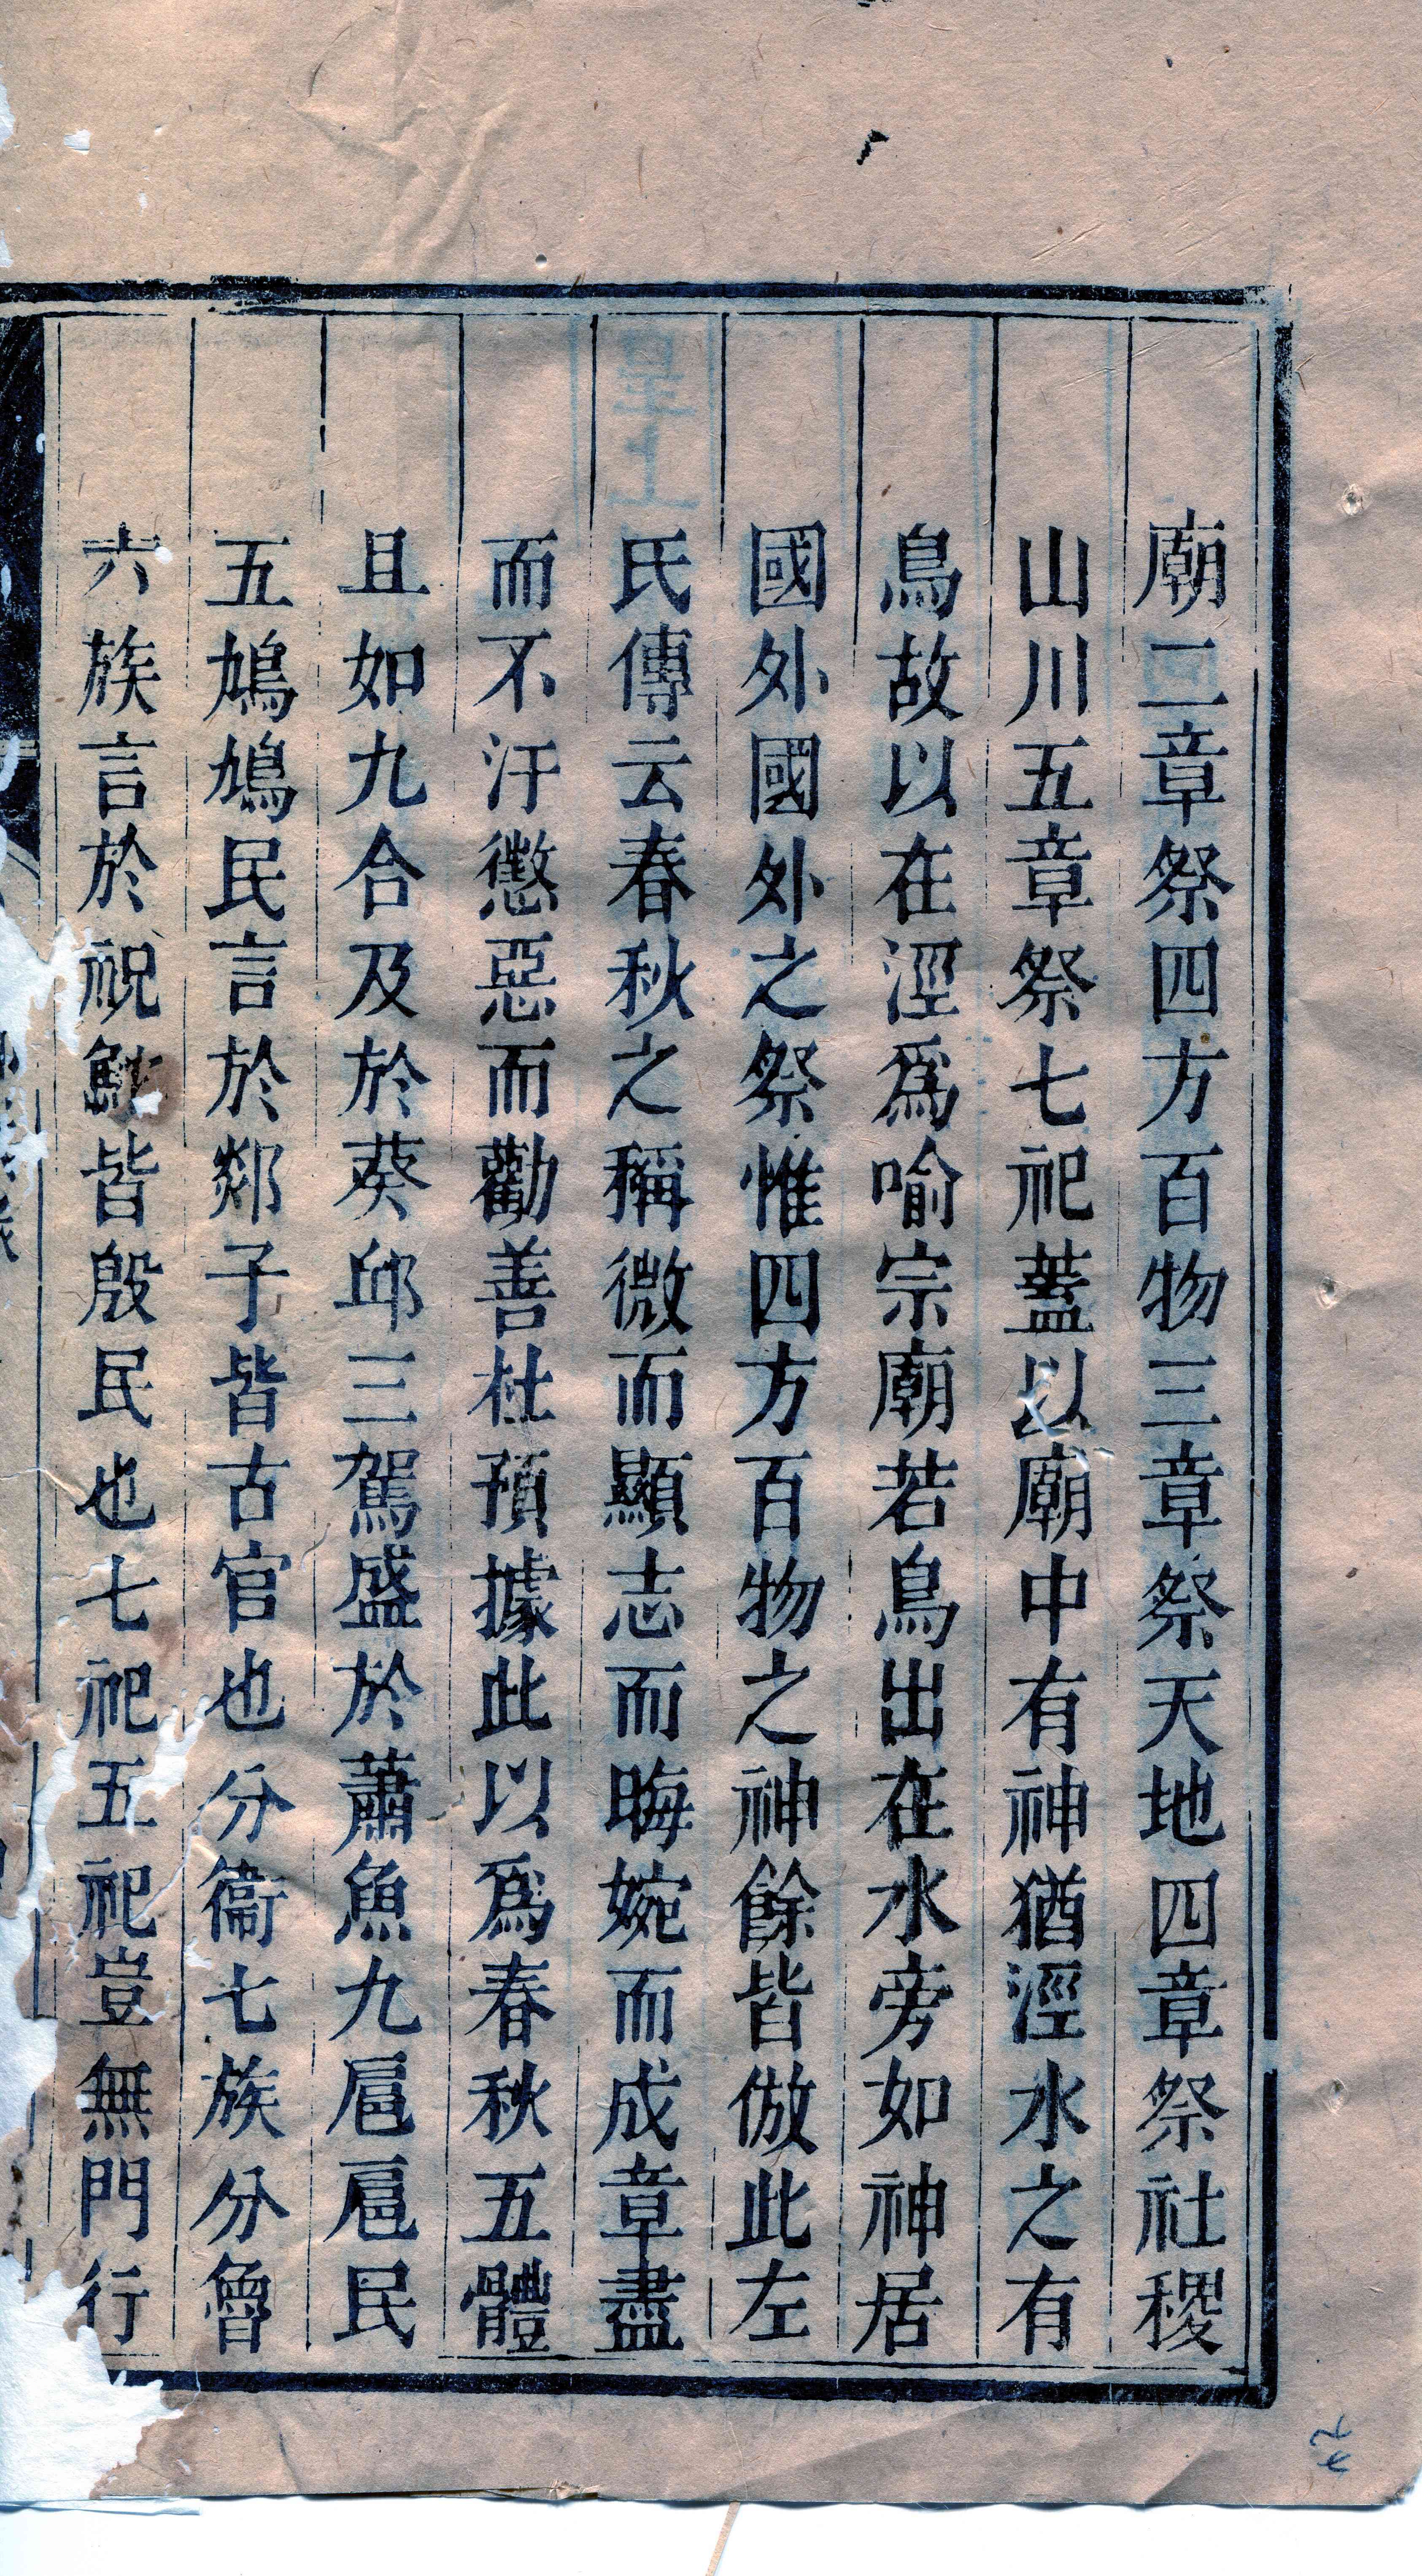 廟二章祭四方百物三章祭天地四章祭社稷
山川五章祭七祀蓋以廟中有神猶涇水之有
鳥故以在涇爲喻宗廟若鳥出在水旁如神居
國外國外之祭惟四方百物之神餘皆倣此左
氏傳云春秋之稱微而顯志而晦婉而成章盡
而不汙懲惡而勸善杜預據此以爲春秋五體
且如九合及於葵邱三駕盛於蕭魚九扈扈民
五鳩鳩民言於郯子皆古官也分衞七族分魯
六族言於祝鮀皆殷民也七祀五祀豈無門行